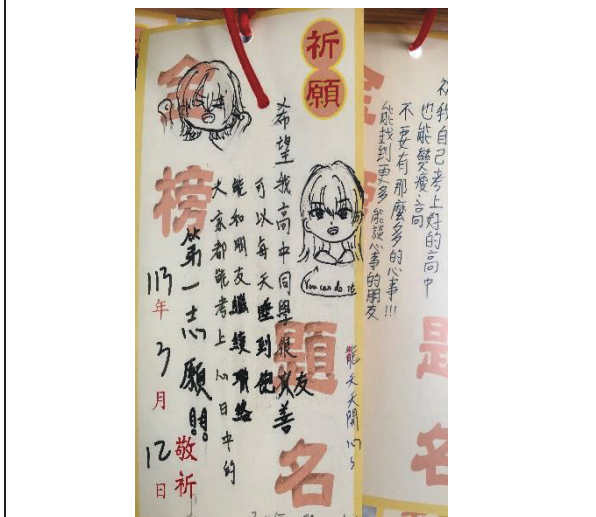 祈願
金榜題名
希望我高中同學很友善
可以每天睡到飽
能和朋友繼續聯絡
大家都能考上心目中的
第一志願!!!
You can do it
能天天開心
113年3月12日
敬祈
祝我自己考上好的高中
也能變瘦、高
不要有那麼多的心事!!!
能找到更多能談心事的朋友
題名